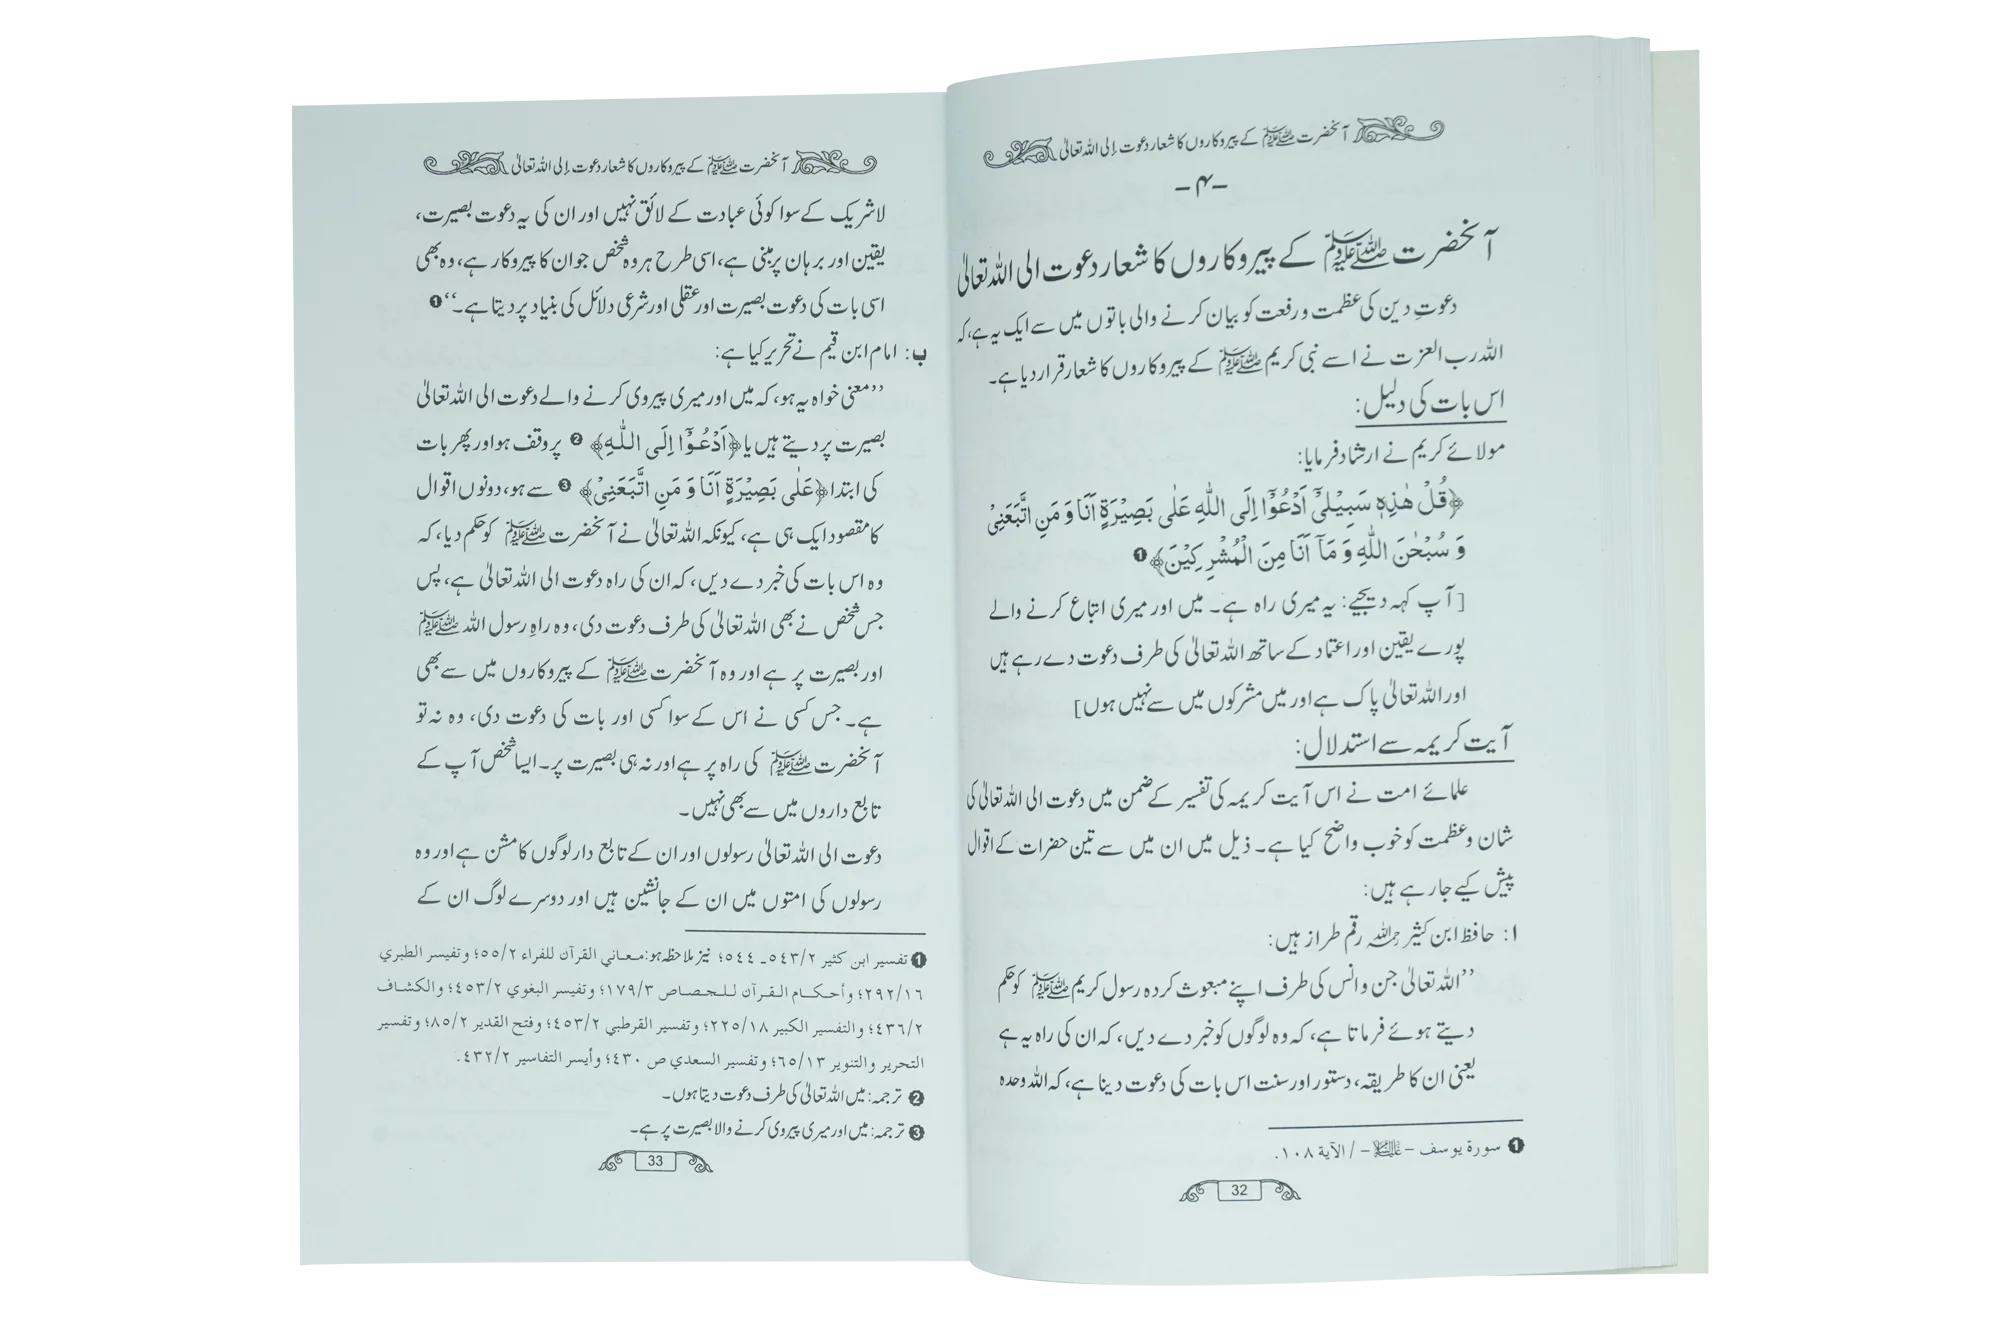 آنحضرت ﷺ کے پیروکاروں کا شعار دعوت إلی اللہ تعالیٰ
-۴-
آنحضرت ﷺ کے پیروکاروں کا شعار دعوت الی اللہ تعالیٰ
دعوتِ دین کی عظمت و رفعت کو بیان کرنے والی باتوں میں سے ایک یہ ہے، کہ
اللہ رب العزت نے اسے نبی کریم ﷺ کے پیروکاروں کا شعار قرار دیا ہے۔
اس بات کی دلیل:
مولائے کریم نے ارشاد فرمایا:
﴿قُلْ هٰذِهٖ سَبِيْلِيْٓ اَدْعُوْٓا اِلَى اللّٰهِ عَلٰى بَصِيْرَةٍ اَنَا وَ مَنِ اتَّبَعَنِيْ
وَ سُبْحٰنَ اللّٰهِ وَ مَآ اَنَا مِنَ الْمُشْرِكِيْنَ﴾ ❶
[آپ کہہ دیجیے: یہ میری راہ ہے۔ میں اور میری اتباع کرنے والے
پورے یقین اور اعتماد کے ساتھ اللہ تعالیٰ کی طرف دعوت دے رہے ہیں
اور اللہ تعالیٰ پاک ہے اور میں مشرکوں میں سے نہیں ہوں]
آیت کریمہ سے استدلال:
علمائے امت نے اس آیت کریمہ کی تفسیر کے ضمن میں دعوت الی اللہ تعالیٰ کی
شان و عظمت کو خوب واضح کیا ہے۔ ذیل میں ان میں سے تین حضرات کے اقوال
پیش کیے جا رہے ہیں:
ا: حافظ ابن کثیر رحمہ اللہ رقم طراز ہیں:
’’اللہ تعالیٰ جن و انس کی طرف اپنے مبعوث کردہ رسول کریم ﷺ کو حکم
دیتے ہوئے فرماتا ہے، کہ وہ لوگوں کو خبر دے دیں، کہ ان کی راہ یہ ہے
یعنی ان کا طریقہ، دستور اور سنت اس بات کی دعوت دینا ہے، کہ اللہ وحدہ
❶ سورة يوسف - عليه السلام - / الآية ١٠٨.
32
آنحضرت ﷺ کے پیروکاروں کا شعار دعوت إلی اللہ تعالیٰ
لا شریک کے سوا کوئی عبادت کے لائق نہیں اور ان کی یہ دعوت بصیرت،
یقین اور برہان پر مبنی ہے، اسی طرح ہر وہ شخص جو ان کا پیروکار ہے، وہ بھی
اسی بات کی دعوت بصیرت اور عقلی اور شرعی دلائل کی بنیاد پر دیتا ہے۔‘‘ ❶
ب: امام ابن قیم نے تحریر کیا ہے:
’’معنی خواہ یہ ہو، کہ میں اور میری پیروی کرنے والے دعوت الی اللہ تعالیٰ
بصیرت پر دیتے ہیں یا ﴿اَدْعُوْٓا اِلَى اللّٰهِ﴾ ❷ پر وقف ہو اور پھر بات
کی ابتدا ﴿عَلٰى بَصِيْرَةٍ اَنَا وَ مَنِ اتَّبَعَنِيْ﴾ ❸ سے ہو، دونوں اقوال
کا مقصود ایک ہی ہے، کیونکہ اللہ تعالیٰ نے آنحضرت ﷺ کو حکم دیا، کہ
وہ اس بات کی خبر دے دیں، کہ ان کی راہ دعوت الی اللہ تعالیٰ ہے، پس
جس شخص نے بھی اللہ تعالیٰ کی طرف دعوت دی، وہ راہِ رسول اللہ ﷺ
اور بصیرت پر ہے اور وہ آنحضرت ﷺ کے پیروکاروں میں سے بھی
ہے۔ جس کسی نے اس کے سوا کسی اور بات کی دعوت دی، وہ نہ تو
آنحضرت ﷺ کی راہ پر ہے اور نہ ہی بصیرت پر۔ ایسا شخص آپ کے
تابع داروں میں سے بھی نہیں۔
دعوت الی اللہ تعالیٰ رسولوں اور ان کے تابع دار لوگوں کا مشن ہے اور وہ
رسولوں کی امتوں میں ان کے جانشین ہیں اور دوسرے لوگ ان کے
❶ تفسير ابن كثير ٥٤٣/٢ ـ ٥٤٤؛ نیز ملاحظہ ہو: معاني القرآن للفراء ٥٥/٢؛ وتفسير الطبري
٢٩٢/١٦؛ وأحكام القرآن للجصاص ١٧٩/٣؛ وتفسير البغوي ٤٥٣/٢؛ والكشاف
٤٣٦/٢؛ والتفسير الكبير ٢٢٥/١٨؛ وتفسير القرطبي ٤٥٣/٢؛ وفتح القدير ٨٥/٢؛ وتفسير
التحرير والتنوير ٦٥/١٣؛ وتفسير السعدي ص ٤٣٠؛ وأيسر التفاسير ٤٣٢/٢.
❷ ترجمہ: میں اللہ تعالیٰ کی طرف دعوت دیتا ہوں۔
❸ ترجمہ: میں اور میری پیروی کرنے والا بصیرت پر ہے۔
33